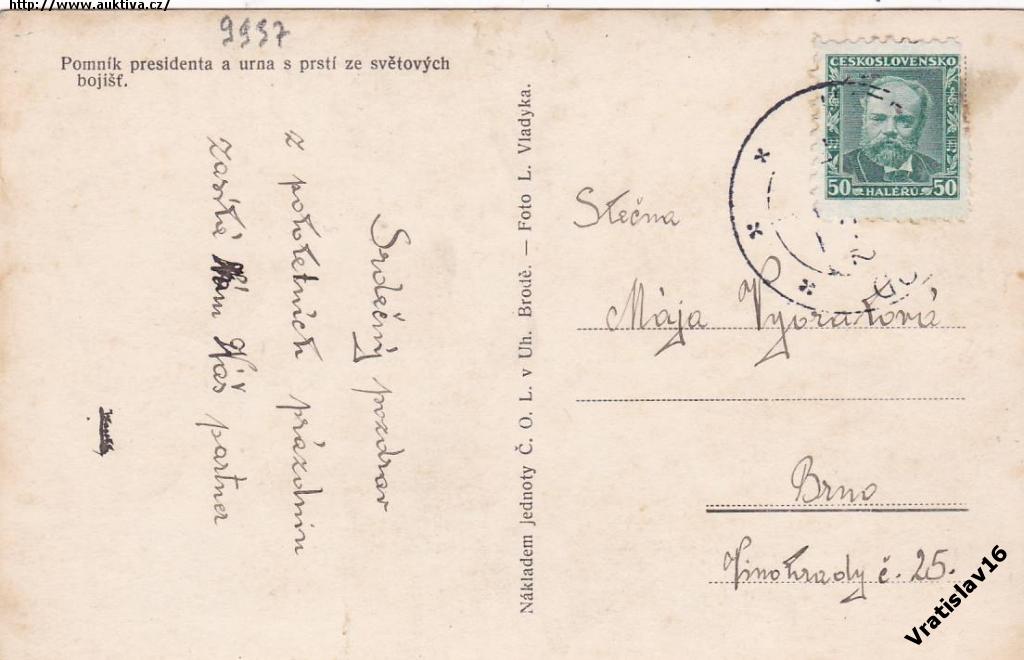 http://www.auktiva.cz/
9937
Pomník presidenta a urna s prstí ze světových
bojišť.
Srdečný pozdrav
z pololetních prázdnin
zasílá Vám Váš partner
Nákladem jednoty Č. O. L. v Uh. Brodě. — Foto L. Vladyka.
ČESKOSLOVENSKO
50 HALÉŘŮ 50
Slečna
Mája
Brno
Vinohrady č. 25.
Vratislav16